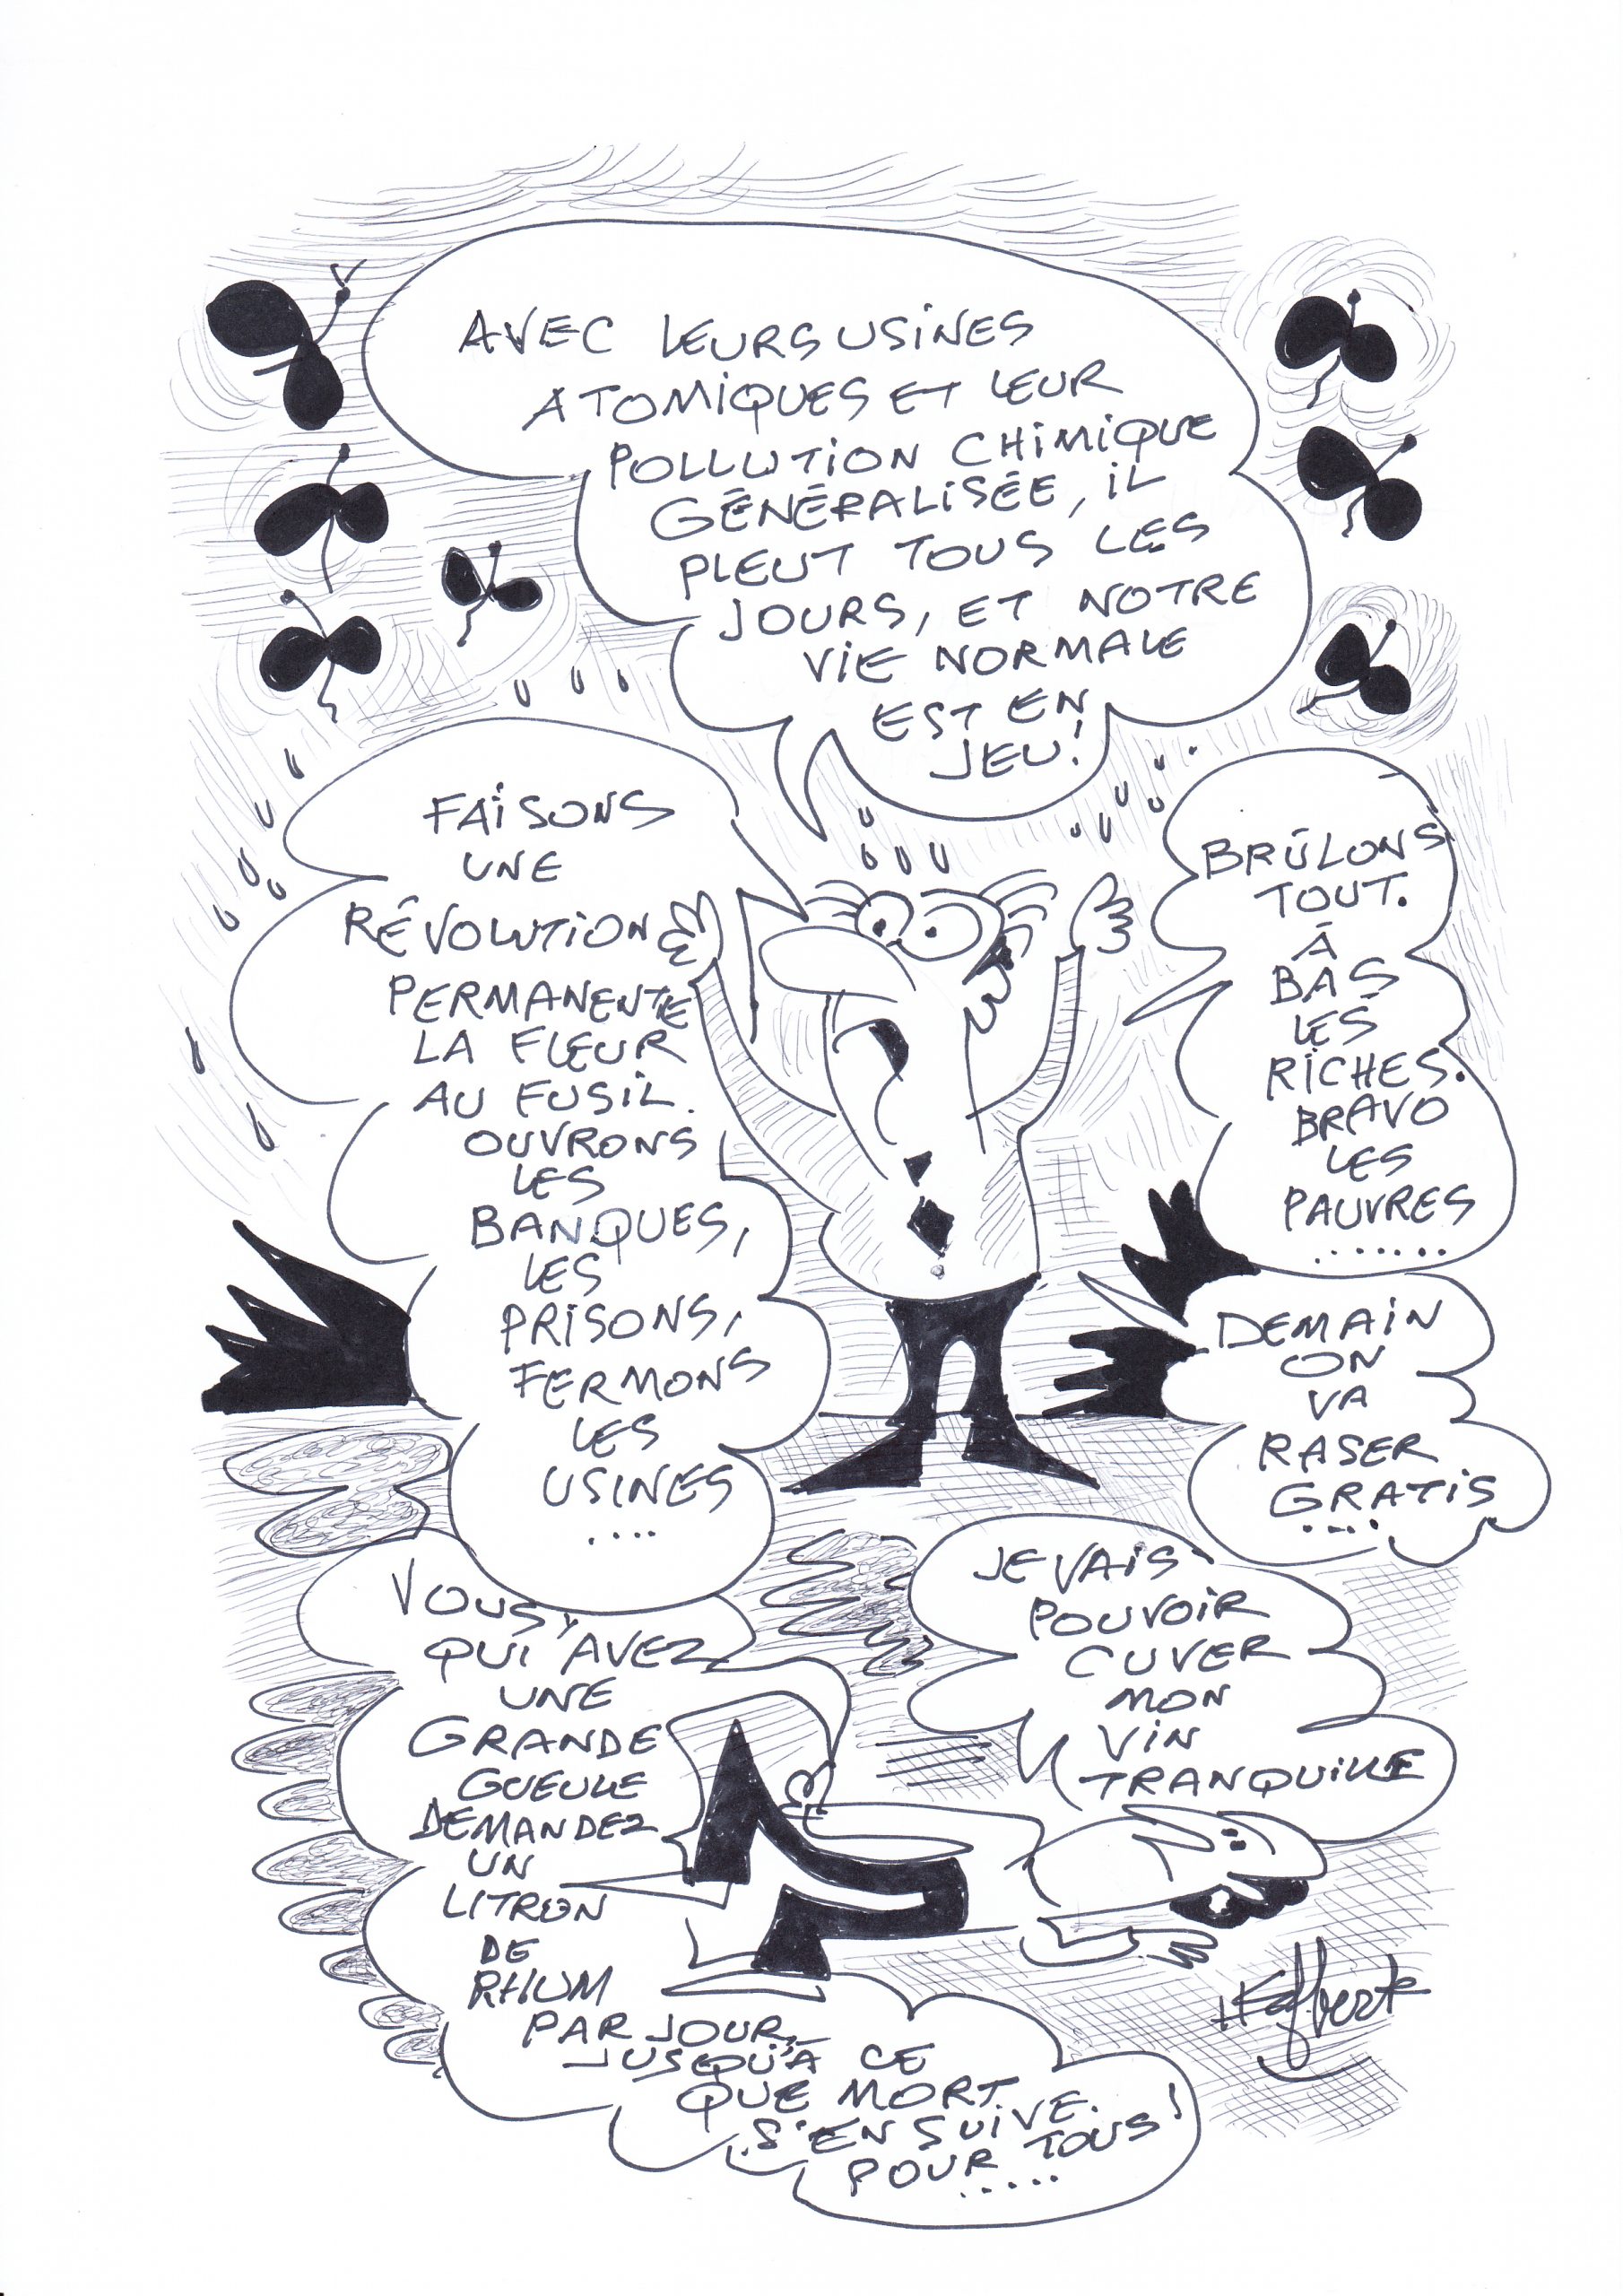 AVEC LEURS USINES
ATOMIQUES ET LEUR
POLLUTION CHIMIQUE
GÉNÉRALISÉE, IL
PLEUT TOUS LES
JOURS, ET NOTRE
VIE NORMALE
EST EN
JEU!
FAISONS
UNE
RÉVOLUTION
PERMANENTE
LA FLEUR
AU FUSIL.
OUVRONS
LES
BANQUES,
LES
PRISONS,
FERMONS
LES
USINES
....
BRÛLONS
TOUT.
À
BAS
LES
RICHES.
BRAVO
LES
PAUVRES
......
DEMAIN
ON
VA
RASER
GRATIS
....
VOUS,
QUI AVEZ
UNE
GRANDE
GUEULE
DEMANDEZ
UN
LITRON
DE
RHUM
PAR JOUR,
JUSQU'À CE
QUE MORT
S'EN SUIVE.
POUR TOUS!
.....
JE VAIS
POUVOIR
CUVER
MON
VIN
TRANQUILLE